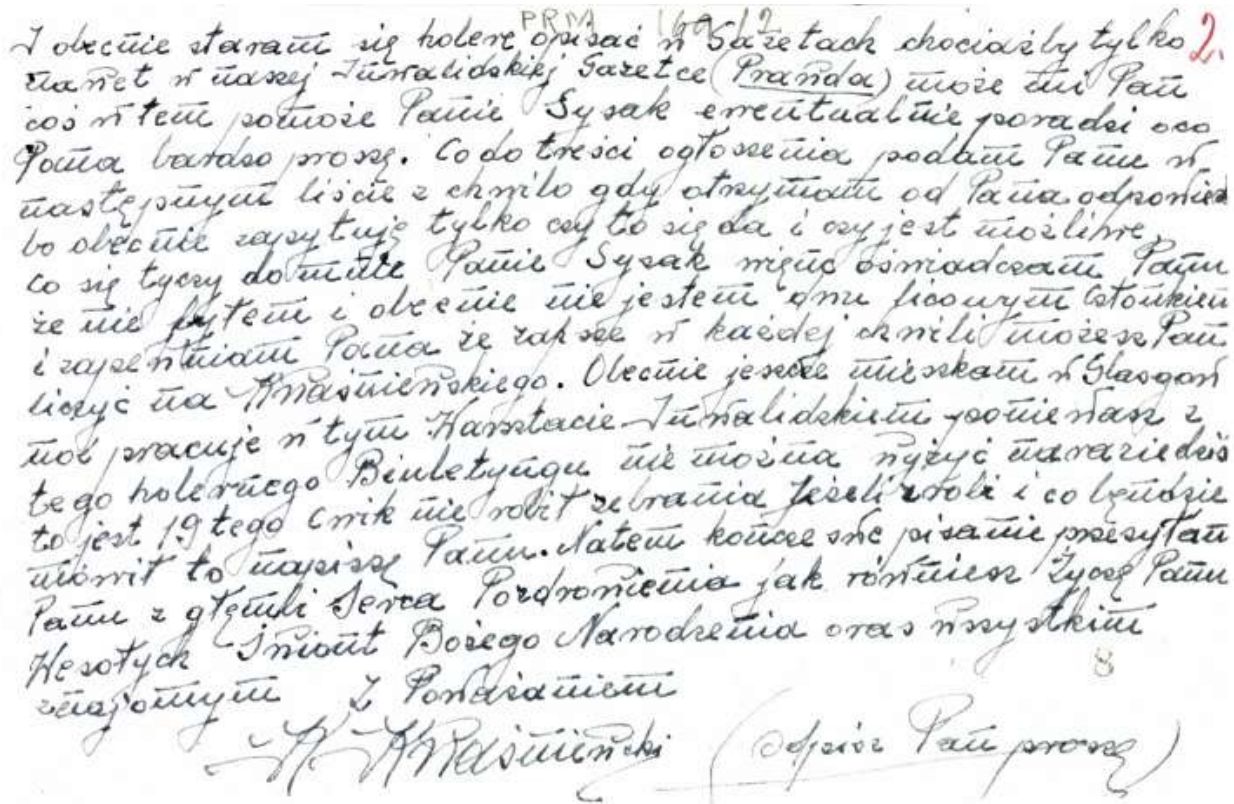 PRM
2.
I obecnie staram się holerę opisać w Gazetach chociażby tylko
nawet w naszej Inwalidskiej Gazetce (Prawda) może mi Pan
coś w tem pomoże Panie Sysak ewentualnie poradzi oco
Pana bardzo proszę. Co do treści ogłoszenia podam Panu w
następnym liście z chwilo gdy otrzymam od Pana odpowied
bo obecnie zapytuję tylko czy to się da i czy jest możliwe,
co się tyczy do mnie Panie Sysak więnc oświadczam Panu
że nie byłem i obecnie nie jestem członkiem
i zapewniam Pana że zawsze w każdej chwili możesz Pan
liczyć na Kwaśnieńskiego. Obecnie jeszcze mieszkam w Glasgow
no i pracuje w tym Warstacie Inwalidzkiem poniewasz z
tego holernego Biuletyngu nie można wyżyć narazie dziś
to jest 19 tego Cwik nie robił zebrania Jeżeli zrobi i co bęndzie
mówił to napiszę Panu. Natem kończe swe pisanie przesyłam
Panu z głęmbi Serca Pozdrowienia jak równiesz Życzę Panu
Wesołych Świont Bożego Narodzenia oras wszystkim
znajomym Z Powarzaniem
8
K. Kwaśnieński (Odpisz Pan proszę)